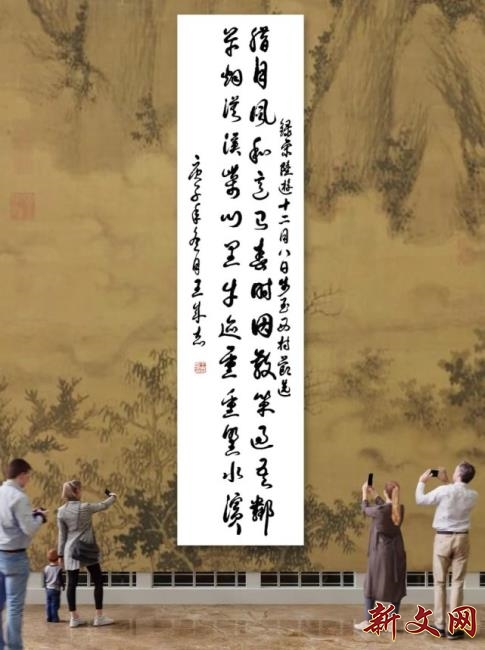 錄宋陸游十二月八日步至西村節選
腊月風和意已春時因散策過吾鄰
草烟漠漠柴門里牛迹重重野水濱
庚子年冬月王志
新文网